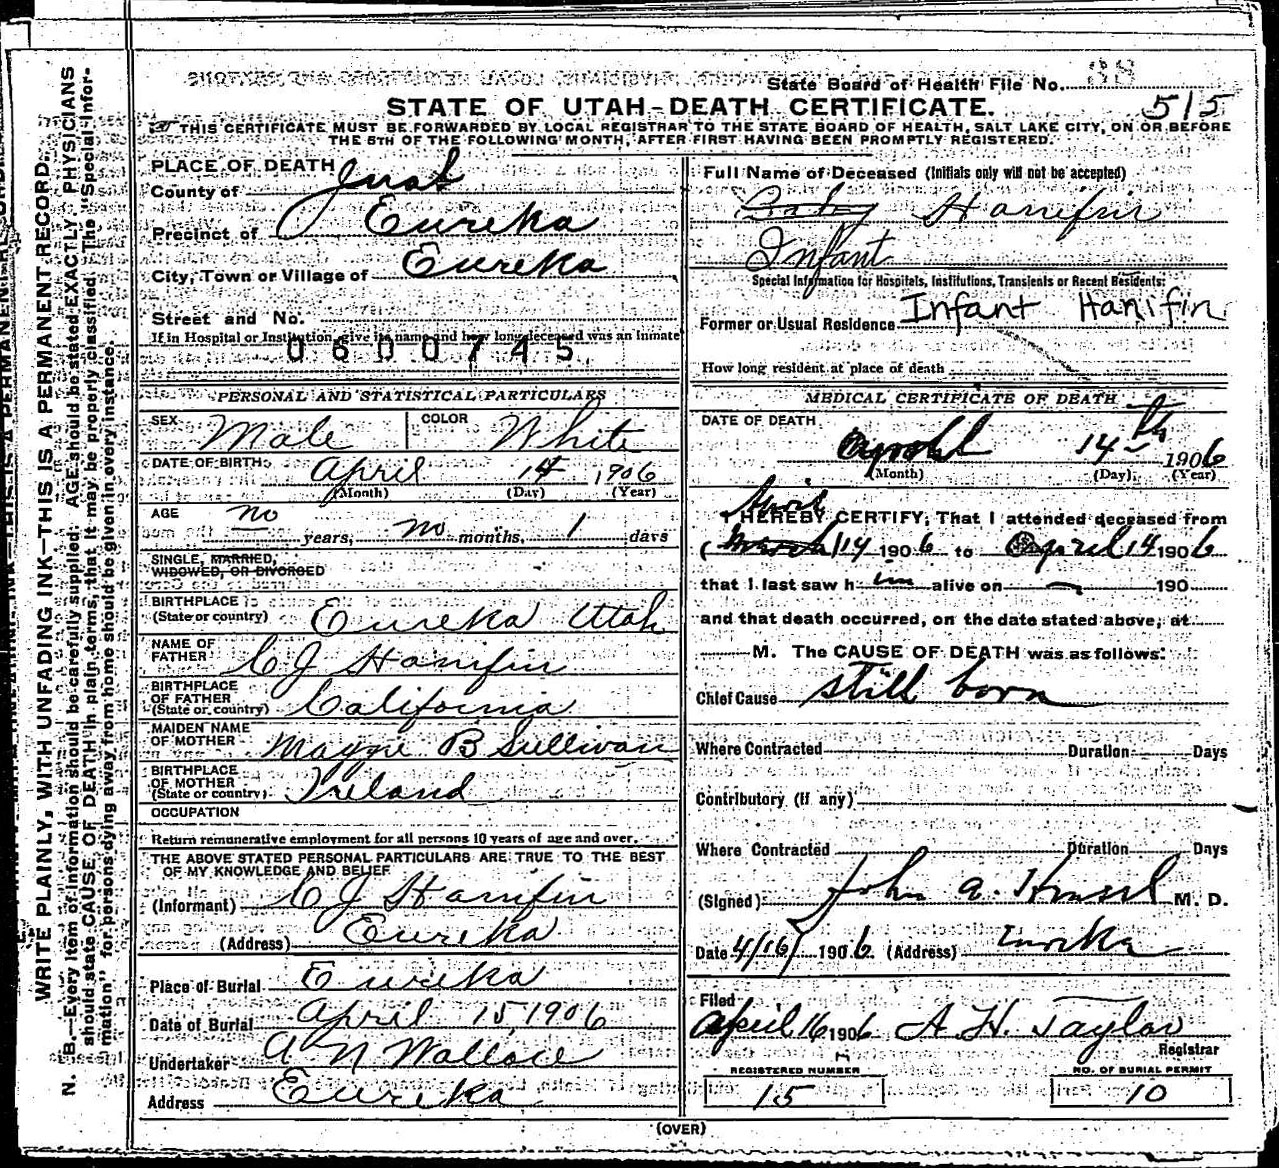 State Board of Health File No. 38
STATE OF UTAH-DEATH CERTIFICATE.
515
THIS CERTIFICATE MUST BE FORWARDED BY LOCAL REGISTRAR TO THE STATE BOARD OF HEALTH, SALT LAKE CITY, ON OR BEFORE
THE 5TH OF THE FOLLOWING MONTH, AFTER FIRST HAVING BEEN PROMPTLY REGISTERED.
PLACE OF DEATH
County of Juab
Precinct of Eureka
City, Town or Village of Eureka
Street and No.
If in Hospital or Institution, give its name and how long deceased was an inmate
0600745
PERSONAL AND STATISTICAL PARTICULARS
SEX Male COLOR White
DATE OF BIRTH: April 14 1906
(Month) (Day) (Year)
AGE
no years, no months, 1 days
SINGLE, MARRIED,
WIDOWED, OR DIVORCED
BIRTHPLACE
(State or country) Eureka Utah
NAME OF
FATHER C J Hanifin
BIRTHPLACE
OF FATHER
(State or country) California
MAIDEN NAME
OF MOTHER Maggie B Sullivan
BIRTHPLACE
OF MOTHER
(State or country) Ireland
OCCUPATION
Return remunerative employment for all persons 10 years of age and over.
THE ABOVE STATED PERSONAL PARTICULARS ARE TRUE TO THE BEST
OF MY KNOWLEDGE AND BELIEF
(Informant) C J Hanifin
(Address) Eureka
Place of Burial Eureka
Date of Burial April 15 1906
Undertaker A N Wallace
Address Eureka
Full Name of Deceased (Initials only will not be accepted)
Baby Hanifin
Infant
Special Information for Hospitals, Institutions, Transients or Recent Residents:
Former or Usual Residence Infant Hanifin
How long resident at place of death
MEDICAL CERTIFICATE OF DEATH
DATE OF DEATH
14th 1906
(Month) (Day) (Year)
April
I HEREBY CERTIFY, That I attended deceased from
March 14 1906 to April 14 1906
that I last saw him alive on 190
and that death occurred, on the date stated above, at
M. The CAUSE OF DEATH was as follows:
Chief Cause still born
Where Contracted Duration Days
Contributory (If any)
Where Contracted Duration Days
(Signed) John A. M. D.
Date 4/16/ 1906. (Address) Eureka
Filed
April 16 1906 A. H. Taylor
Registrar
REGISTERED NUMBER
15
NO. OF BURIAL PERMIT
10
(OVER)
WRITE PLAINLY, WITH UNFADING INK—THIS IS A PERMANENT RECORD.
N. B.—Every item of information should be carefully supplied. AGE should be stated EXACTLY. PHYSICIANS
should state CAUSE OF DEATH in plain terms, that it may be properly classified. The "Special Infor-
mation" for persons dying away from home should be given in every instance.